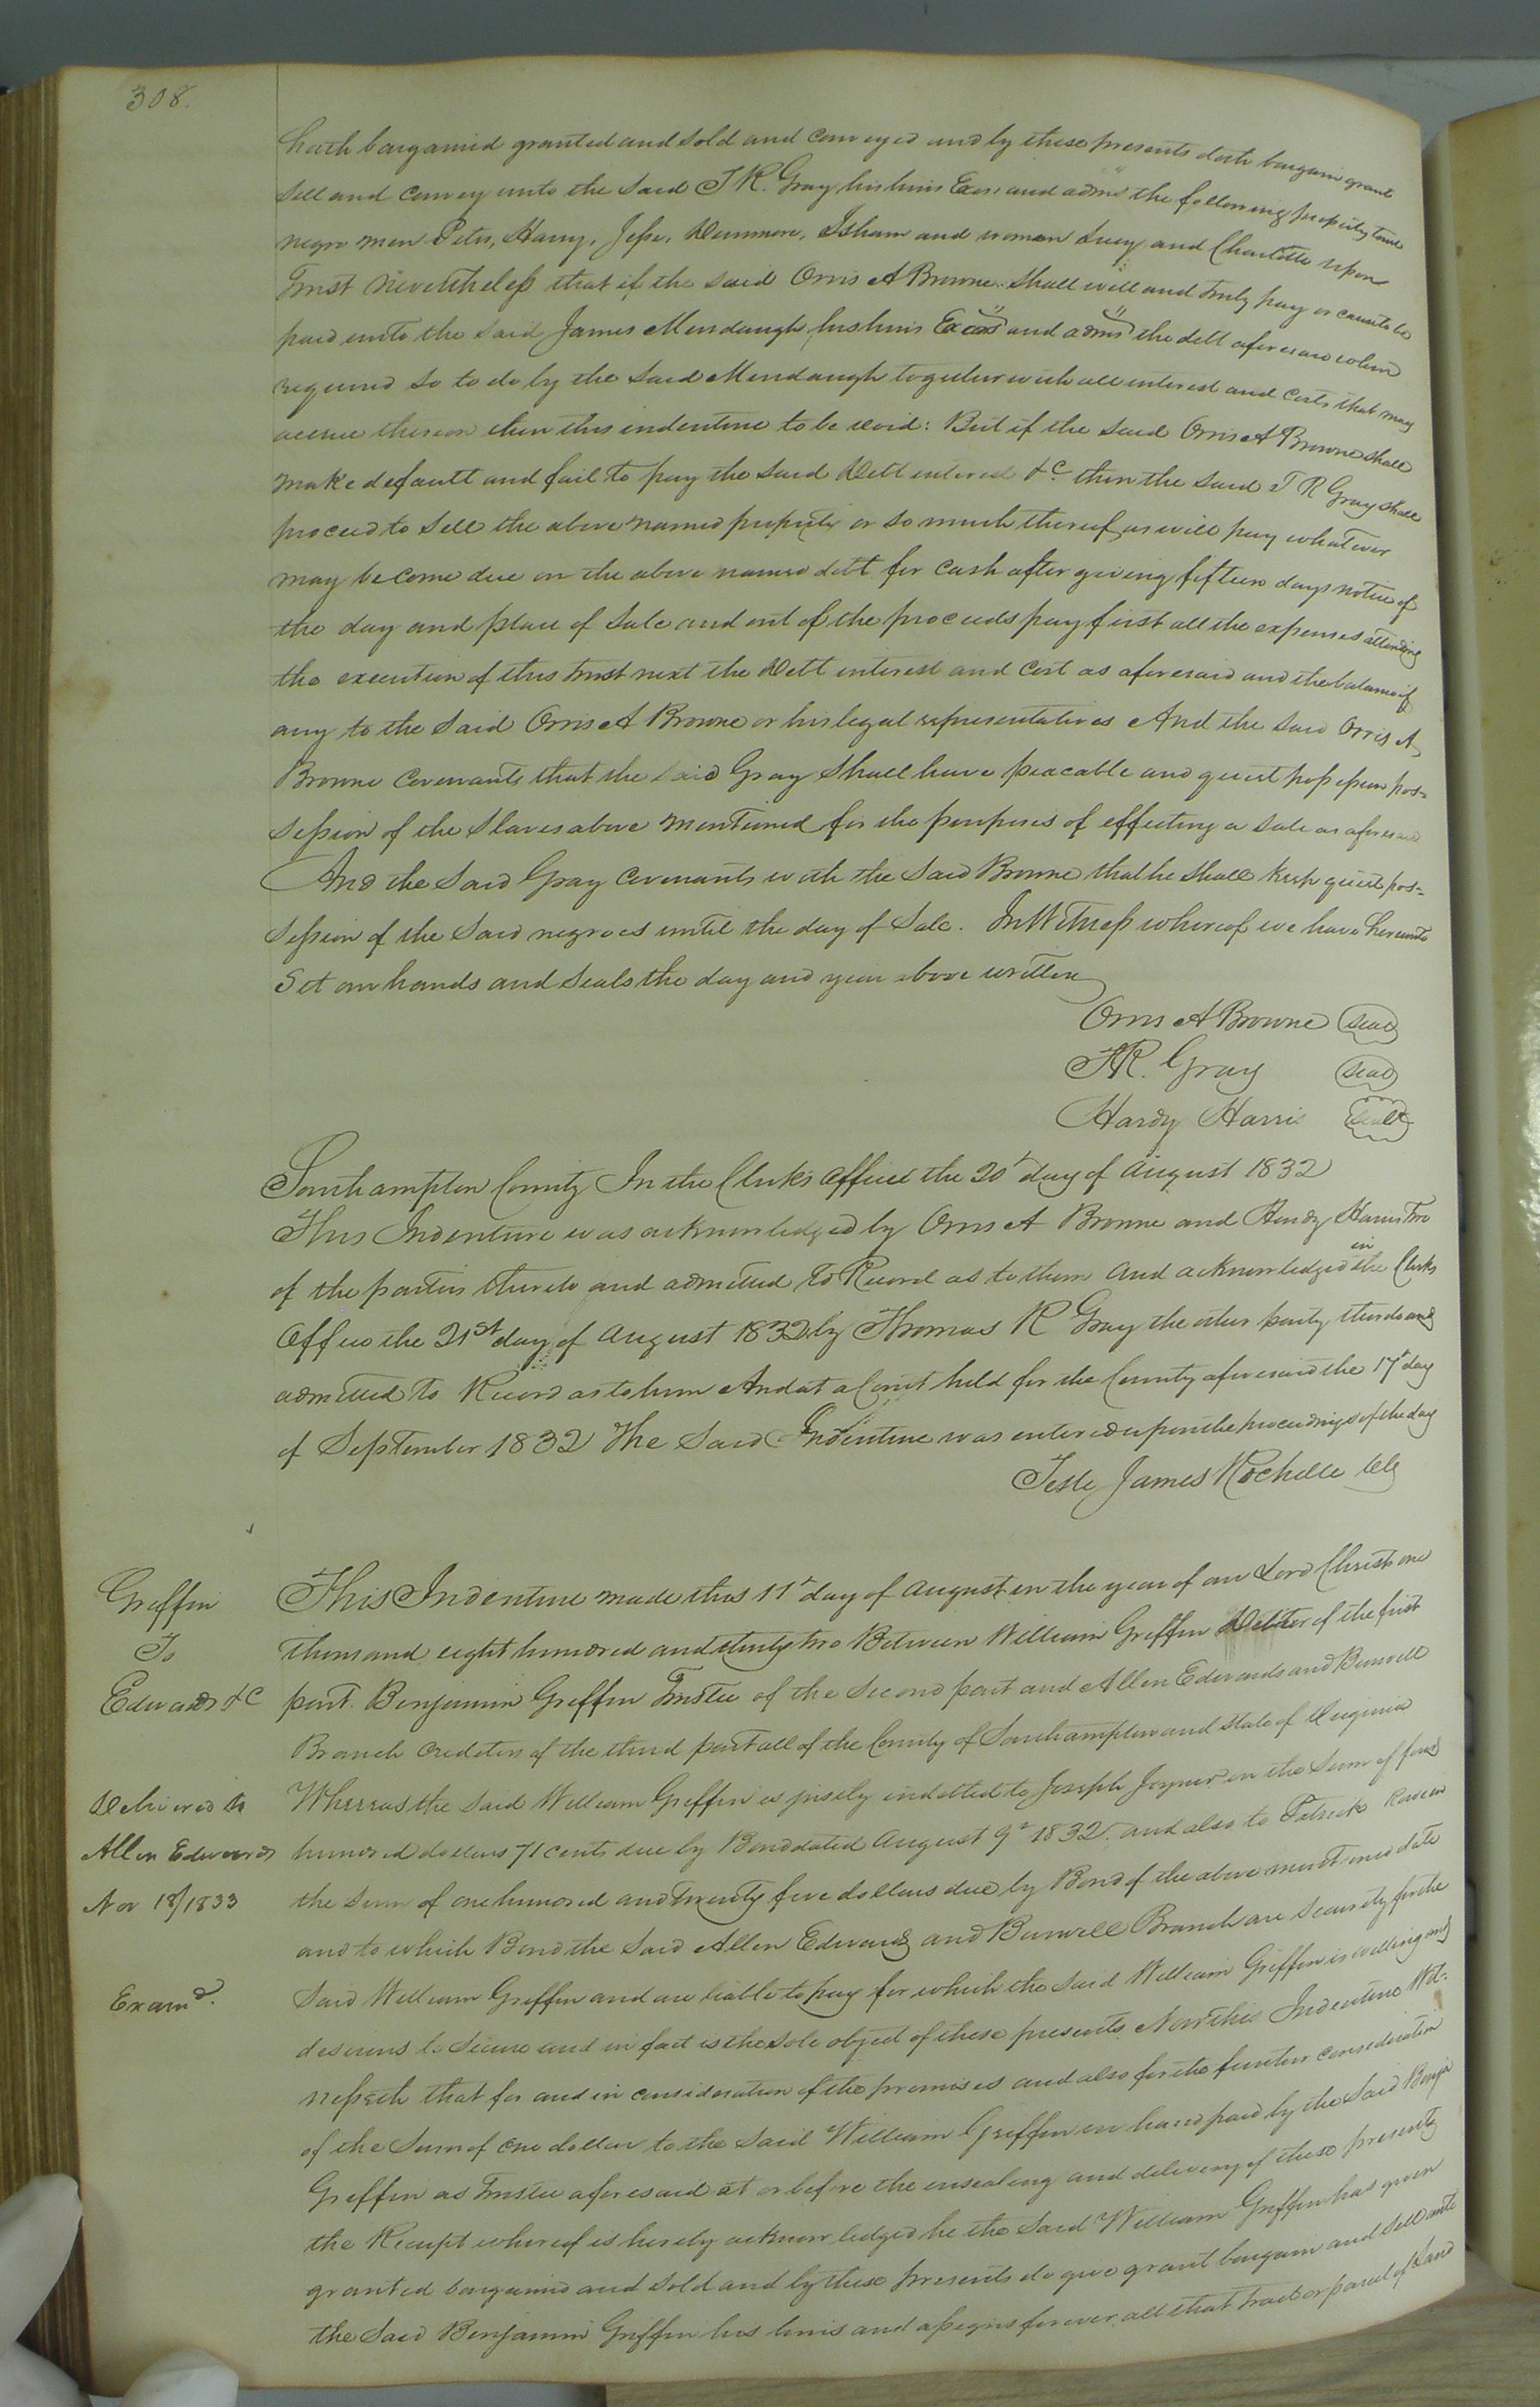 308.
hath bargained granted and sold and conveyed and by these presents doth bargain grant
sell and convey unto the said T R. Gray his heirs Exors and adms the following property towit
negro men Peter, Harry, Jesse, Dunmore, Isham and woman Lucy and Charlotte upon
Trust Nevertheless that if the said Orris A Browne shall well and truly pay or cause to be
paid unto the said James Mendaugh his heirs Exors and adms the debt aforesaid when
required so to do by the said Mendaugh together with all interest and costs that may
accrue thereon then this indenture to be void: But if the said Orris A Browne shall
make default and fail to pay the said debt interest &c. then the said T R Gray shall
proceed to sell the above named property or so much thereof as will pay whatever
may become due on the above named debt for cash after giving fifteen days notice of
the day and place of sale and out of the proceeds pay first all the expenses attending
the execution of this trust next the debt interest and cost as aforesaid and the balance if
any to the said Orris A Browne or his legal representatives And the said Orris A
Browne covenants that the said Gray shall have peacable and quiet possession pos=
session of the slaves above mentioned for the purposes of effecting a sale as aforesaid
And the said Gray covenants with the said Browne that he shall keep quiet pos=
session of the said negroes until the day of Sale. In Witness whereof we have hereunto
set our hands and seals the day and year above written
Orris A Browne (seal)
T R. Gray (seal)
Hardy Harris (seal)
Southampton County In the Clerks office the 20t day of August 1832
This Indenture was acknowledged by Orris A Browne and Hardy Harris two
of the parties thereto and admitted to Record as to them And acknowledged in the Clerks
Office the 21st day of August 1832 by Thomas R Gray the other party thereto and
admitted to Record as to him And at a Court held for the County aforesaid the 17t day
of September 1832 The said Indenture was entered upon the proceedings of the day
Teste James Rochelle Clk
Griffin
To
Edwards &c
Delivered to
Allen Edwards
Nov 18/1833
Examd.
This Indenture made this 11t day of August in the year of our Lord Christ one
thousand eight hundred and thirty two Between William Griffin Debtor of the first
part. Benjamin Griffin Trustee of the second part and Allen Edwards and Burwell
Branch creditors of the third part all of the County of Southampton and State of Virginia
Whereas the said William Griffin is justly indebted to Joseph Joyner in the sum of four
hundred dollars 71 cents due by Bond dated August 9t 1832. and also to Patrick
the sum of one hundred and twenty five dollars due by Bond of the above mentioned date
and to which Bond the said Allen Edwards and Burwell Branch are security for the
said William Griffin and are liable to pay for which the said William Griffin is willing and
desirous to secure and in fact is the sole object of these presents Now this Indenture Wit-
nesseth that for and in consideration of the premises and also for the further consideration
of the sum of one dollar to the said William Griffin in hand paid by the said Benja
Griffin as Trustee aforesaid at or before the ensealing and delivery of these presents
the Receipt whereof is hereby acknowledged he the said William Griffin has given
granted bargained and sold and by these presents do give grant bargain and sell unto
the said Benjamin Griffin his heirs and assigns forever all that tract or parcel of Land